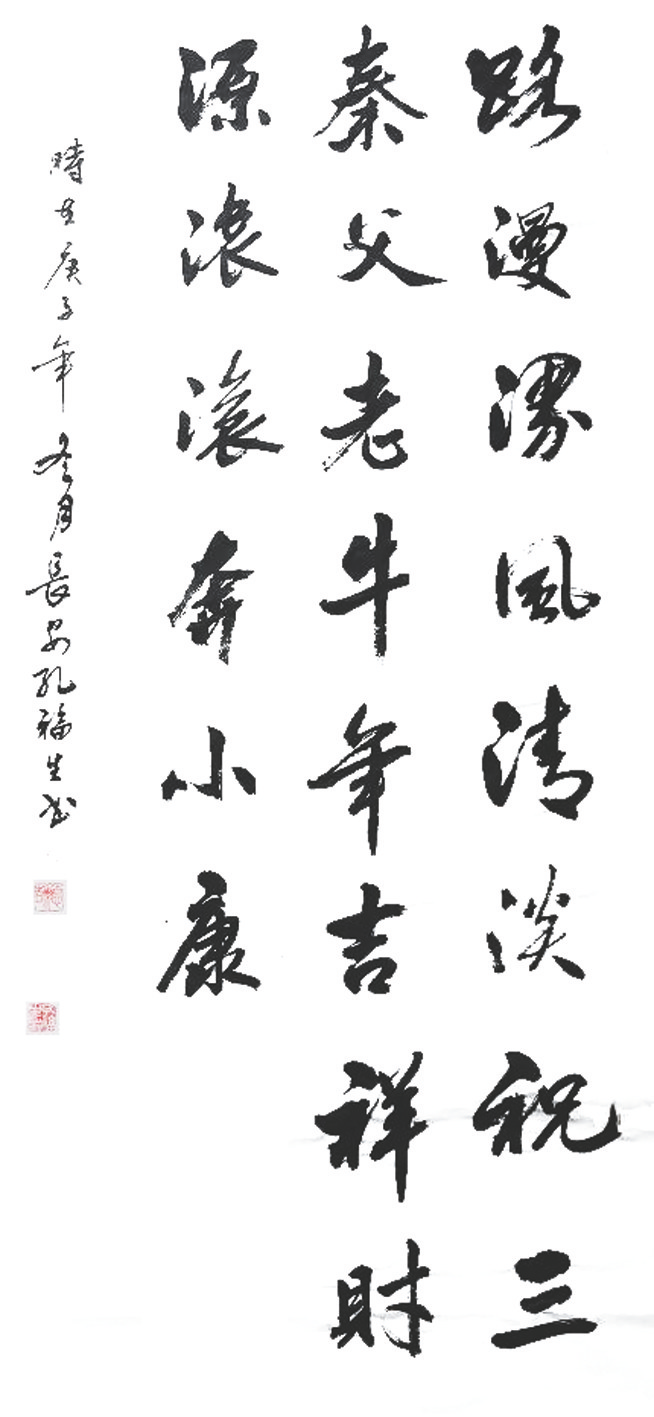 路漫漫風清淡祝三
秦父老牛年吉祥財
源滚滚奔小康
時在庚子年冬月長安孔福生书